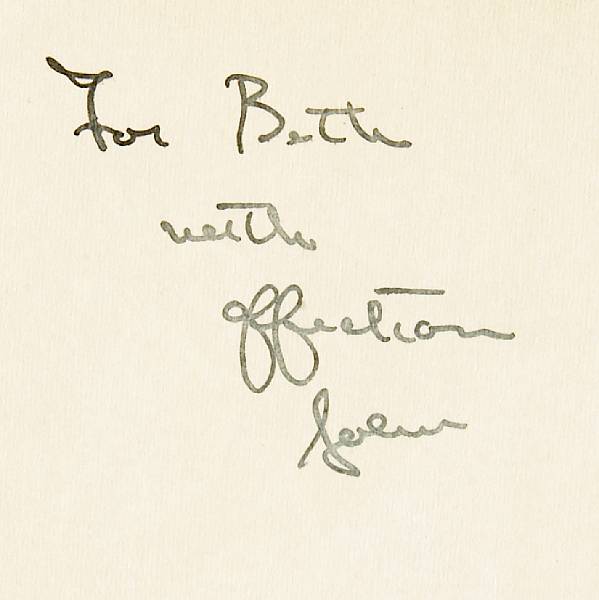 For Beth
with
affection